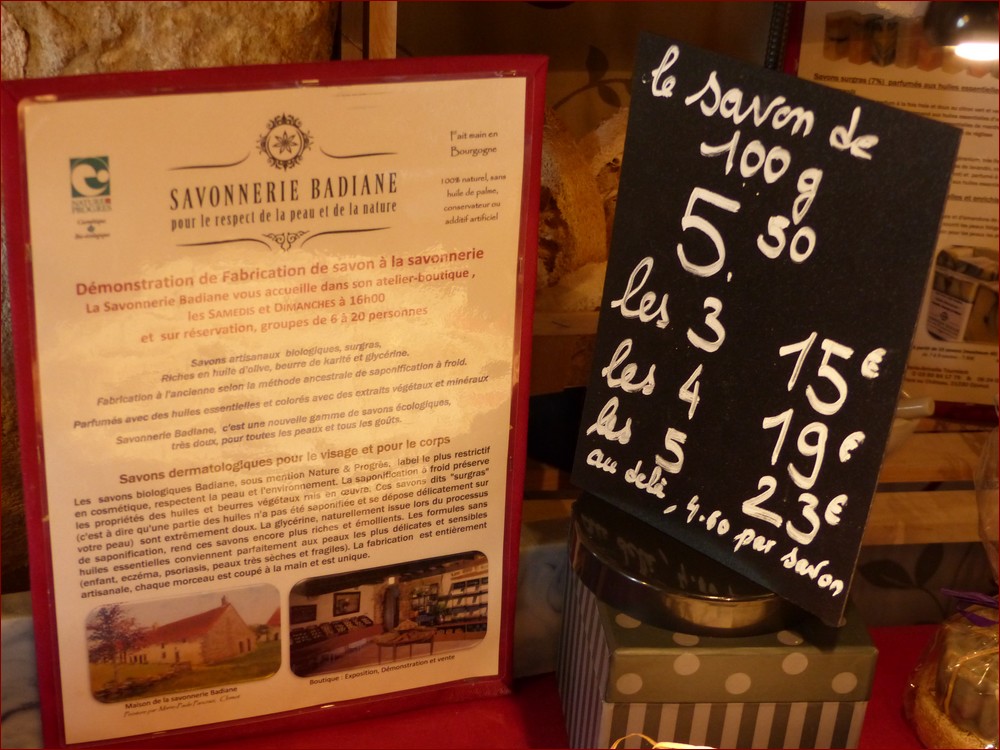 NATURE &
PROGRÈS
Cosmétique
Bio-écologique
SAVONNERIE BADIANE
pour le respect de la peau et de la nature
Fait main en
Bourgogne
100% naturel, sans
huile de palme,
conservateur ou
additif artificiel
Démonstration de Fabrication de savon à la savonnerie
La Savonnerie Badiane vous accueille dans son atelier-boutique ,
les SAMEDIS et DIMANCHES à 16h00
et sur réservation, groupes de 6 à 20 personnes
Savons artisanaux biologiques, surgras,
Riches en huile d'olive, beurre de karité et glycérine.
Fabrication à l'ancienne selon la méthode ancestrale de saponification à froid.
Parfumés avec des huiles essentielles et colorés avec des extraits végétaux et minéraux
Savonnerie Badiane, c'est une nouvelle gamme de savons écologiques,
très doux, pour toutes les peaux et tous les goûts.
Savons dermatologiques pour le visage et pour le corps
Les savons biologiques Badiane, sous mention Nature & Progrès, label le plus restrictif
en cosmétique, respectent la peau et l'environnement. La saponification à froid préserve
les propriétés des huiles et beurres végétaux mis en œuvre. Ces savons dits "surgras"
(c'est à dire qu'une partie des huiles n'a pas été saponifiée et se dépose délicatement sur
votre peau) sont extrêmement doux. La glycérine, naturellement issue lors du processus
de saponification, rend ces savons encore plus riches et émollients. Les formules sans
huiles essentielles conviennent parfaitement aux peaux les plus délicates et sensibles
(enfant, eczéma, psoriasis, peaux très sèches et fragiles). La fabrication est entièrement
artisanale, chaque morceau est coupé à la main et est unique.
Maison de la savonnerie Badiane
Boutique : Exposition, Démonstration et vente
le savon de
100 g
5.50
les 3 15€
les 4 19€
les 5 23€
au delà, 4.60 par savon
Savons surgras (7%) parfumés aux huiles essentielles